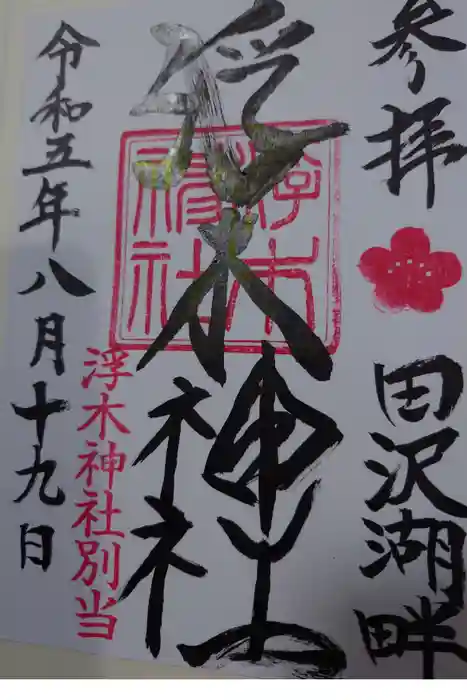 参拝
田沢湖畔
浮木神社
浮木神社別当
令和五年八月十九日